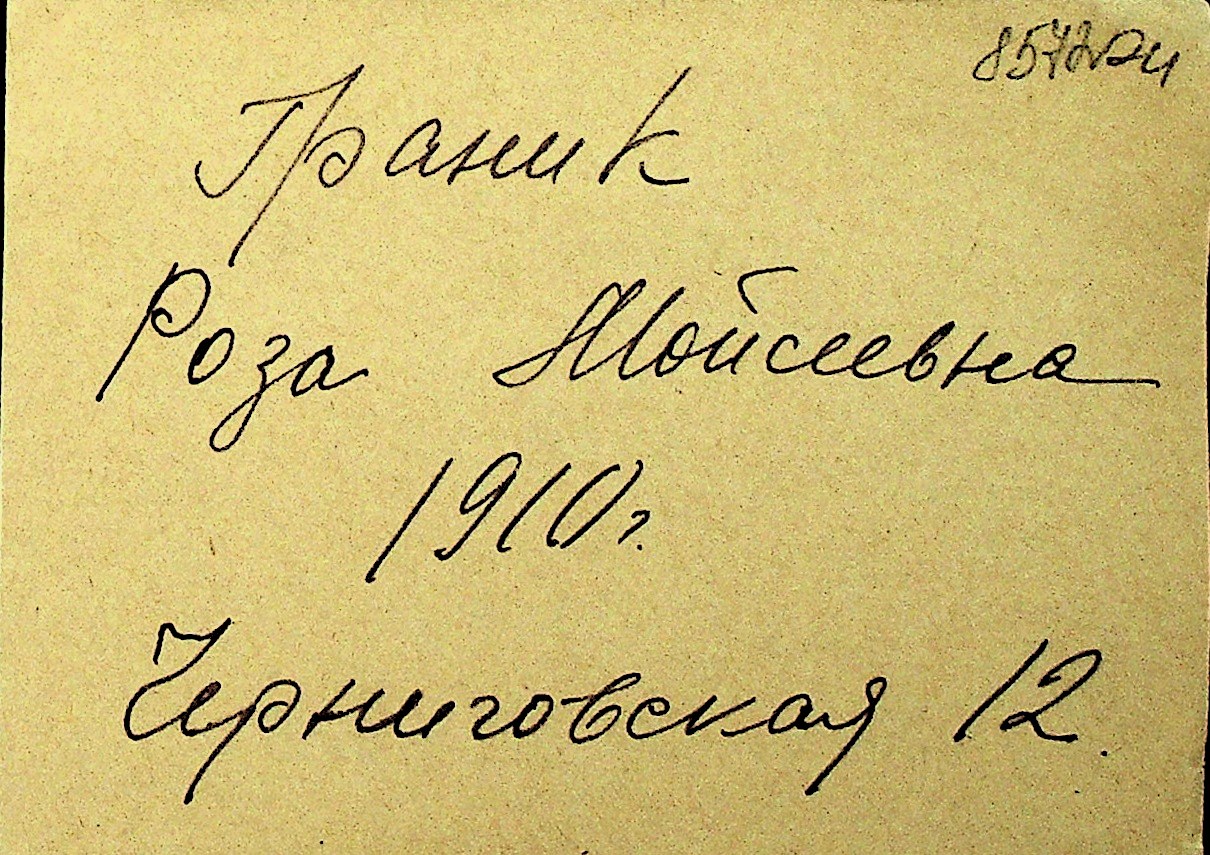 Граник
Роза Мойсеевна
1910 г.
Черниговская 12.